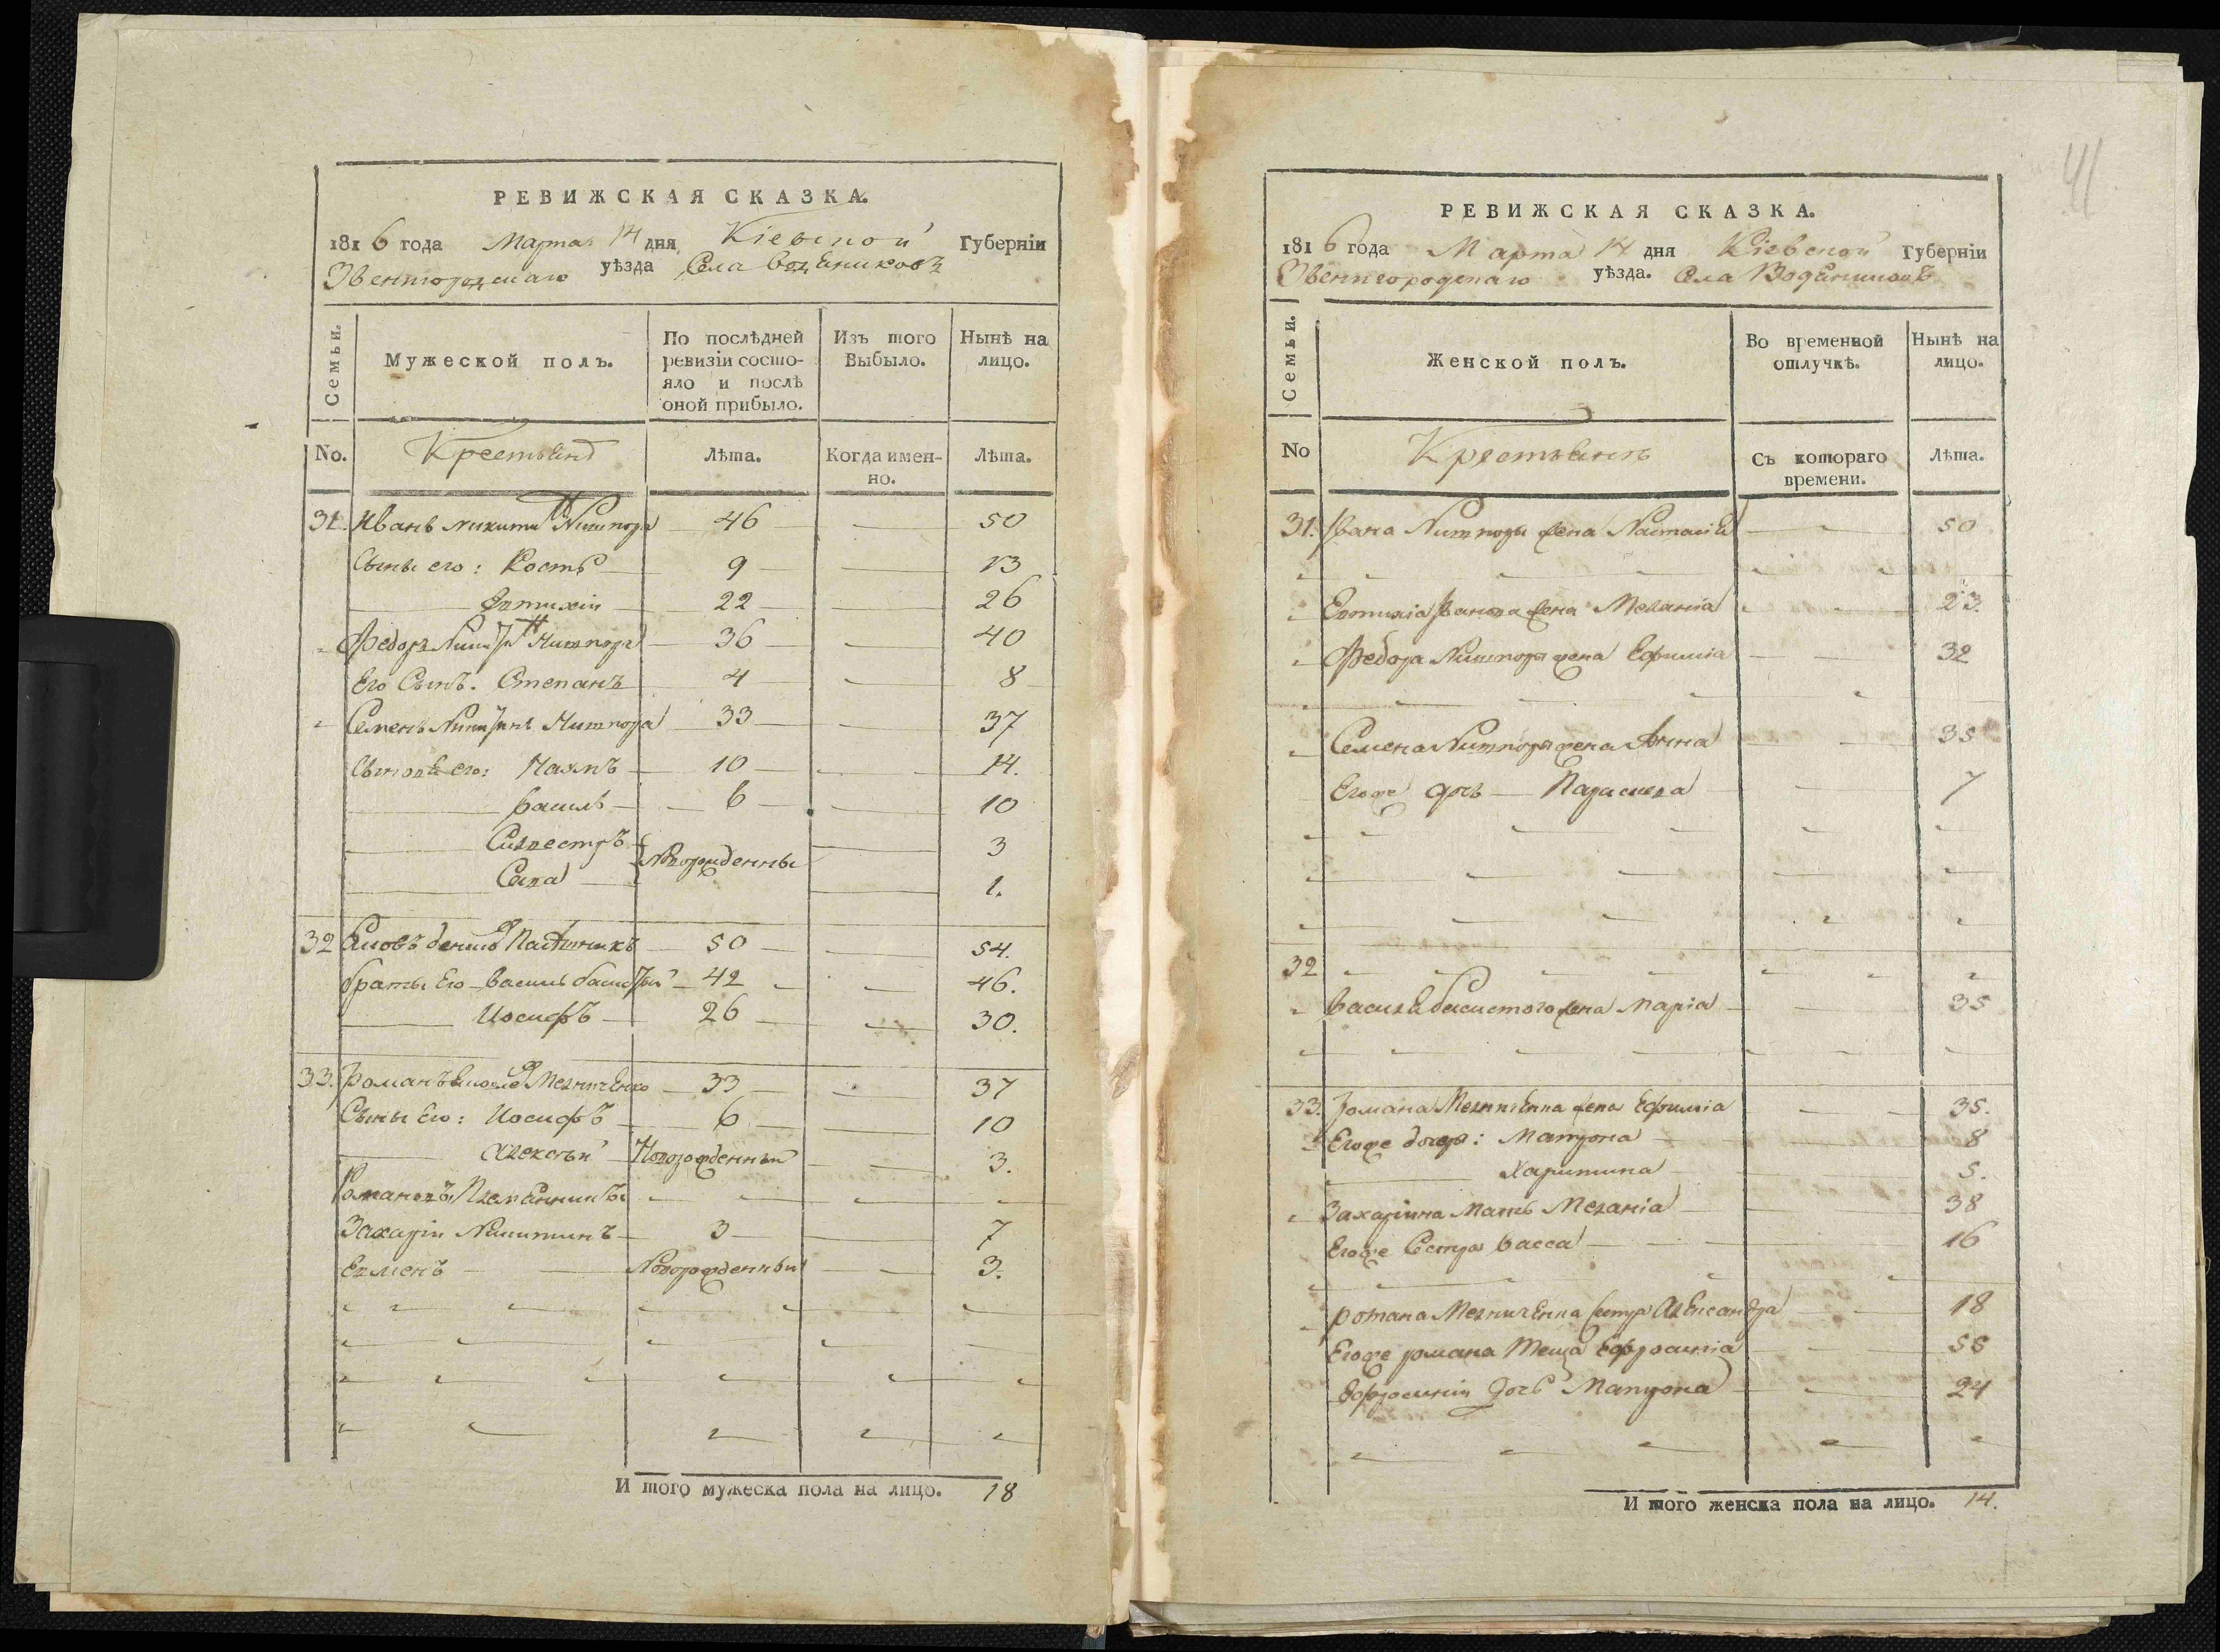 РЕВИЖСКАЯ СКАЗКА.
1816 года Марта 14 дня Кіевской Губерніи
Звенигородскаго уѣзда Села Водяниковъ
Семьи.
Мужеской полъ.
По послѣдней ревизіи состояло и послѣ оной прибыло.
Изъ того Выбыло.
Нынѣ на лицо.
No. Крестьянъ Лѣта. Когда именно. Лѣта.
31. Иванъ Никити Нитпора 46 — 50
Сыны его: Кость 9 — 13
Евтихіи 22 — 26
Федоръ Нитпора 36 — 40
Его Сынъ. Степанъ 4 — 8
Семенъ Никитинъ Нитпора 33 — 37
его: Наумъ 10 — 14.
Василь 6 — 10
Силвестръ Новорожденны — 3
Сава — 1.
32 50 — 54.
браты Его Василь 42 — 46.
Иосифъ 26 — 30.
33. Романъ Мелниченко 33 — 37
Сыны Его: Иосифъ 6 — 10
Алексѣй Новорожденный — 3.
Романовы Племянники
Захаріи Никитинъ 3 — 7
Евменъ Новорожденный — 3.
И того мужеска пола на лицо. 18
41
РЕВИЖСКАЯ СКАЗКА.
1816 года Марта 14 дня Кіевской Губерніи
Звенигородскаго уѣзда. Села Водяниковъ
Семьи.
Женской полъ.
Во временной отлучкѣ.
Нынѣ на лицо.
No Крестьянъ Съ котораго времени. Лѣта.
31. Ивана Нитпоры жена Настасія 50
Евтихіа Иванова жена Меланіа 23.
Федора Нитпоры жена Ефиміа 32
Семена Нитпоры жена Анна 35
Егоже дочь Параскева 7
32
Василя жена Маріа 35
33. Романа Мелниченка жена Ефиміа 35.
Егоже дочери: Матрона 8
Харитина 5.
Захаріина Мать Меланіа 38
Егоже Сестра Васса 16
Романа Мелниченка сестра Александра 18
Егоже Романа Теща Ефросиніа 55
Ефросиніи дочь Матрона 24
И того женска пола на лицо. 14.